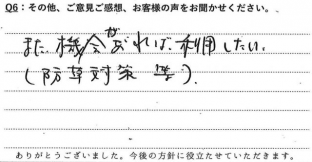 Q6：その他、ご意見ご感想、お客様の声をお聞かせください。
また機会があれば、利用したい。
（防草対策 等）.
ありがとうございました。今後の方針に役立たせていただきます。